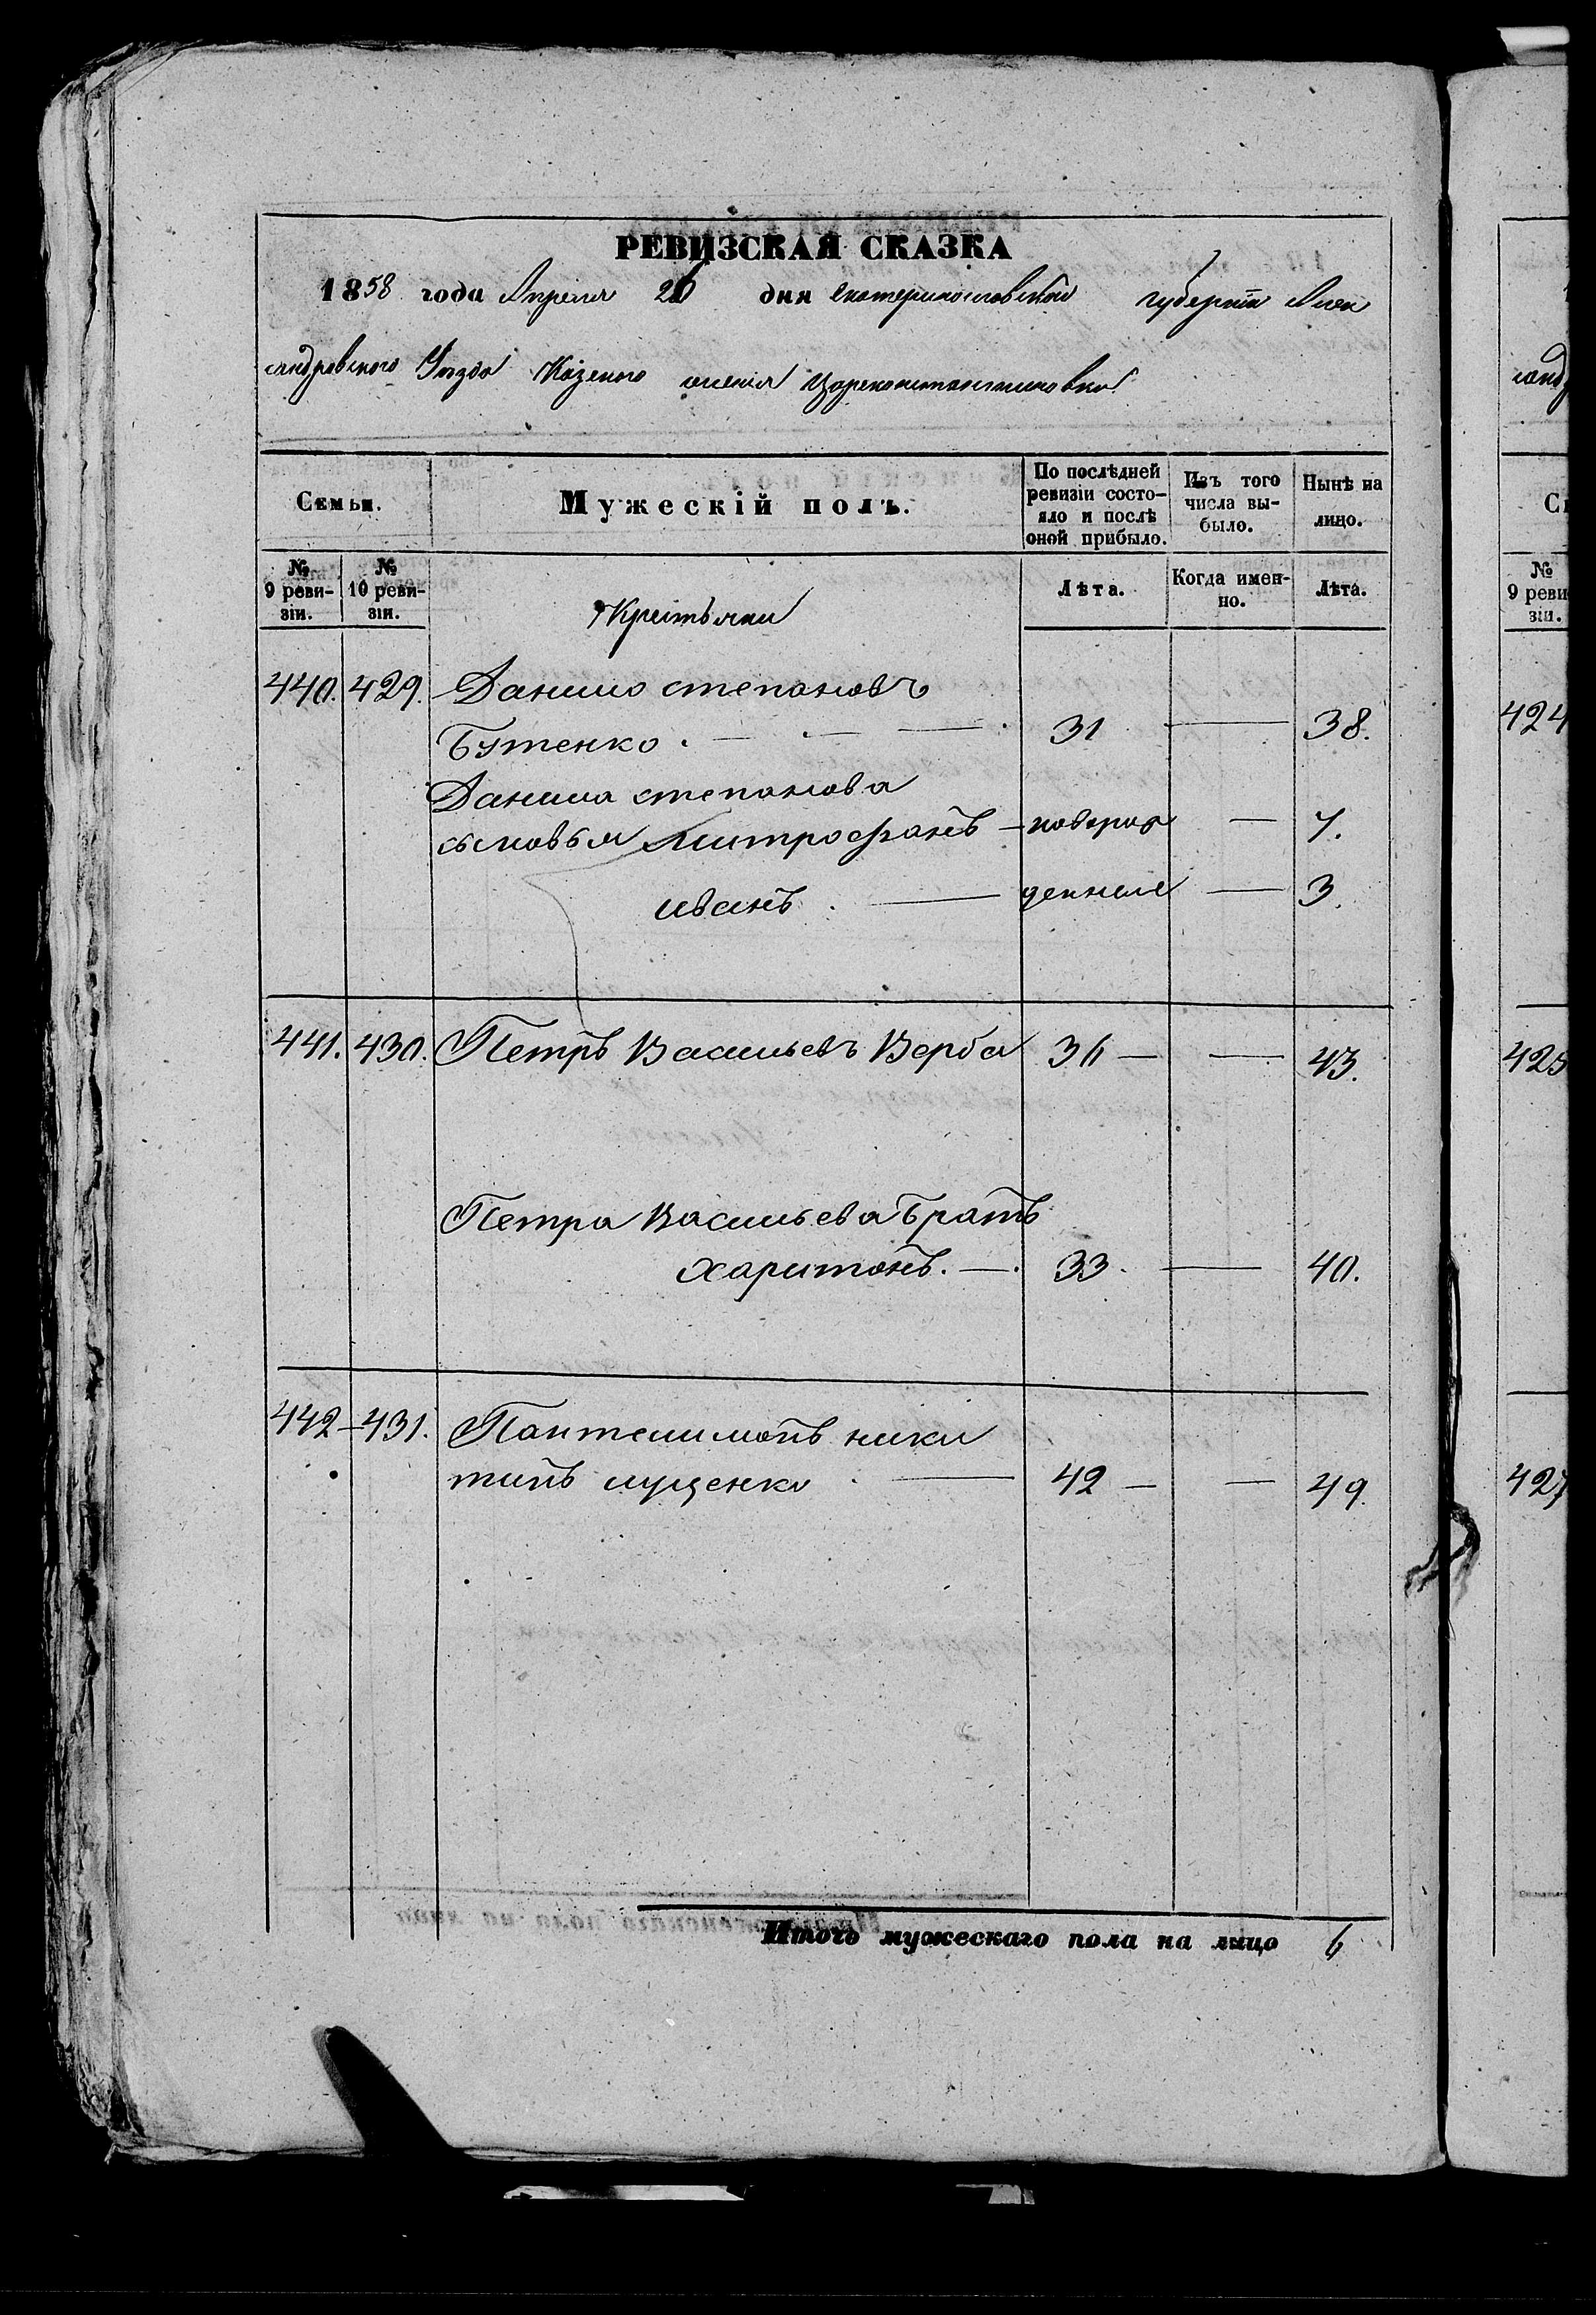 РЕВИЗСКАЯ СКАЗКА
1858 года Апреля 26 дня Екатеринославской губернiи Алек
сандровского Уезда Казеного селенiя Цареконстантиновки
Семьи.
Мужескiй полъ.
По послѣдней ревизiи состо-
яло и послѣ оной прибыло.
Изъ того числа вы-
было.
Нынѣ на лицо.
№ 9 реви-
зiи.
№ 10 реви-
зiи.
Крестьяни
Лѣта.
Когда имен-
но.
Лѣта.
440. 429. Данило степановъ
Бутенко. 31 — 38.
Данила степанова
сыновья митрофанъ — новорож — 7.
иванъ. — денные — 3.
441. 430. Петръ Васильевъ Верба 36 — — 43.
Петра Васильева братъ
харитонъ. — 33. — 40.
442 — 431. Пантелимонъ ники
тинъ луценко — 42 — — 49.
Итого мужескаго пола на лицо 6
С
№
9 реви
зiи.
424
425
427